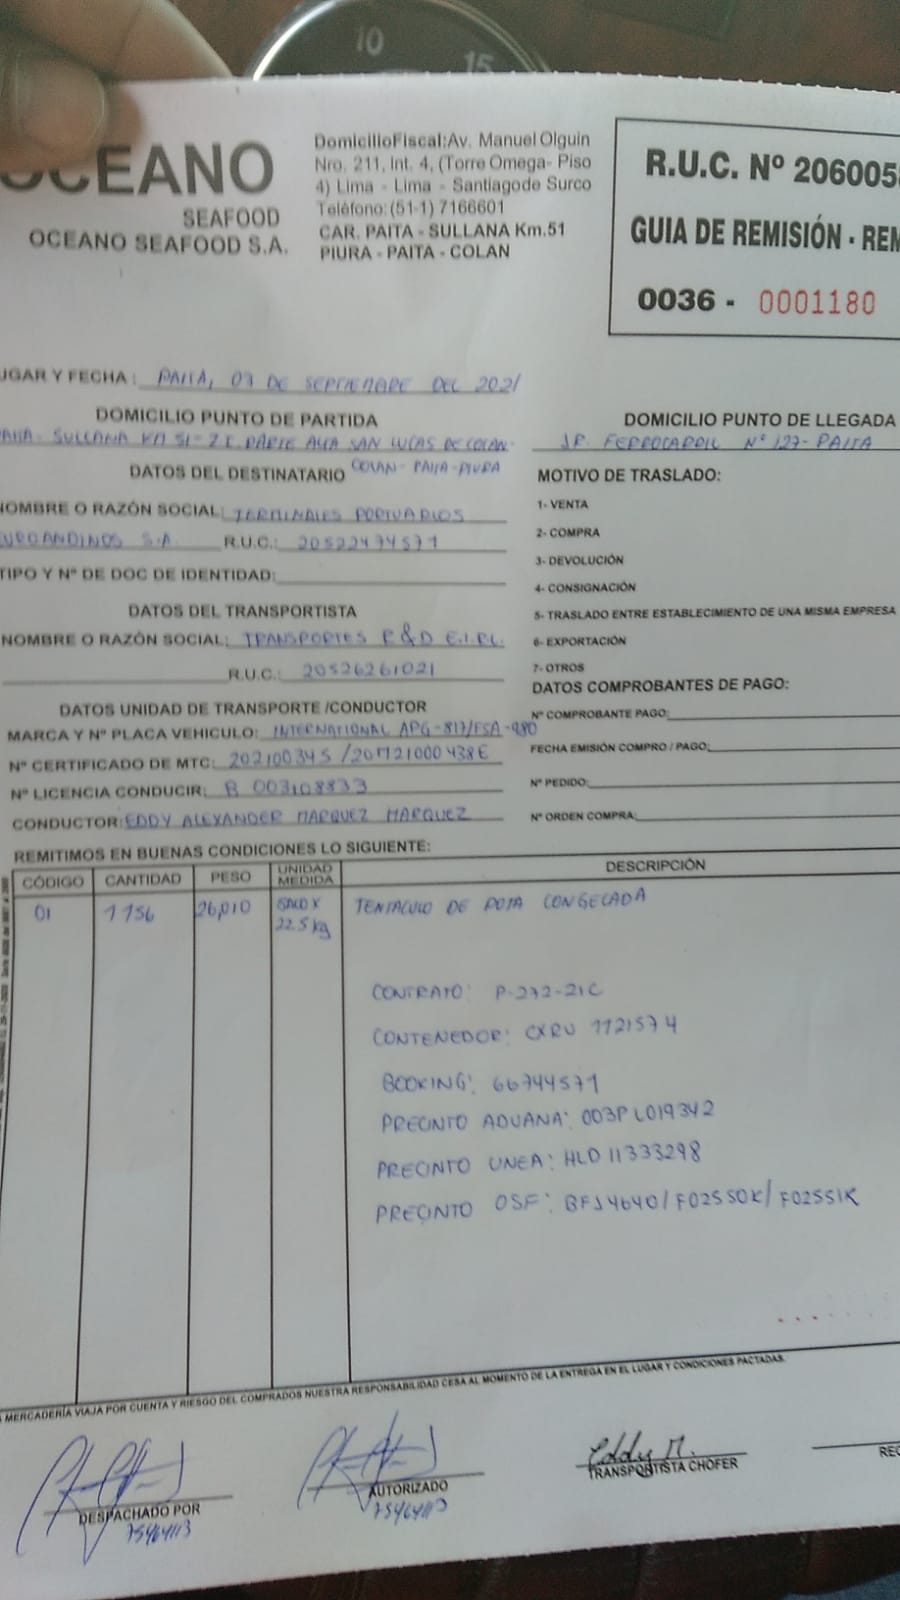 10
15
OCEANO
SEAFOOD
OCEANO SEAFOOD S.A.
DomicilioFiscal:Av. Manuel Olguin
Nro. 211, Int. 4, (Torre Omega- Piso
4) Lima - Lima - Santiagode Surco
Teléfono:(51-1) 7166601
CAR. PAITA - SULLANA Km.51
PIURA - PAITA - COLAN
R.U.C. Nº 206005
GUIA DE REMISIÓN - REM
0036 - 0001180
UGAR Y FECHA: PAITA, 07 DE SEPTIEMBRE DEL 2021
DOMICILIO PUNTO DE PARTIDA
PAITA- SULLANA KM 51- Z.I. PARTE ALTA SAN LUCAS DE COLAN-
COLAN- PAITA-PIURA
DOMICILIO PUNTO DE LLEGADA
JR. FERROCARRIL Nº 127- PAITA
DATOS DEL DESTINATARIO
NOMBRE O RAZÓN SOCIAL: TERMINALES PORTUARIOS
EUROANDINOS S.A. R.U.C.: 20522474571
TIPO Y Nº DE DOC DE IDENTIDAD:
DATOS DEL TRANSPORTISTA
NOMBRE O RAZÓN SOCIAL: TRANSPORTES R&D E.I.R.L.
R.U.C.: 20526261021
DATOS UNIDAD DE TRANSPORTE /CONDUCTOR
MARCA Y Nº PLACA VEHICULO: INTERNATIONAL APG-817/FSA-980
Nº CERTIFICADO DE MTC: 202100345 /201721000438E
Nº LICENCIA CONDUCIR: B 003108833
CONDUCTOR: EDDY ALEXANDER MARQUEZ MARQUEZ
MOTIVO DE TRASLADO:
1- VENTA
2- COMPRA
3- DEVOLUCIÓN
4- CONSIGNACIÓN
5- TRASLADO ENTRE ESTABLECIMIENTO DE UNA MISMA EMPRESA
6- EXPORTACIÓN
7- OTROS
DATOS COMPROBANTES DE PAGO:
Nº COMPROBANTE PAGO:
FECHA EMISIÓN COMPRO / PAGO:
Nº PEDIDO:
Nº ORDEN COMPRA:
REMITIMOS EN BUENAS CONDICIONES LO SIGUIENTE:
CÓDIGO CANTIDAD PESO UNIDAD MEDIDA DESCRIPCIÓN
01 1156 26,010 SACO X 22.5 kg TENTACULO DE POTA CONGELADA
CONTRATO: P-272-21C
CONTENEDOR: CXRU 1121574
BOOKING: 66744571
PRECINTO ADUANA: 003PL019342
PRECINTO LINEA: HLD 11333298
PRECINTO OSF: BFJ4640/F02550K/F02551K
MERCADERÍA VIAJA POR CUENTA Y RIESGO DEL COMPRADOS NUESTRA RESPONSABILIDAD CESA AL MOMENTO DE LA ENTREGA EN EL LUGAR Y CONDICIONES PACTADAS.
DESPACHADO POR
75464113
AUTORIZADO
75464113
Eddy M.
TRANSPORTISTA CHOFER
REC